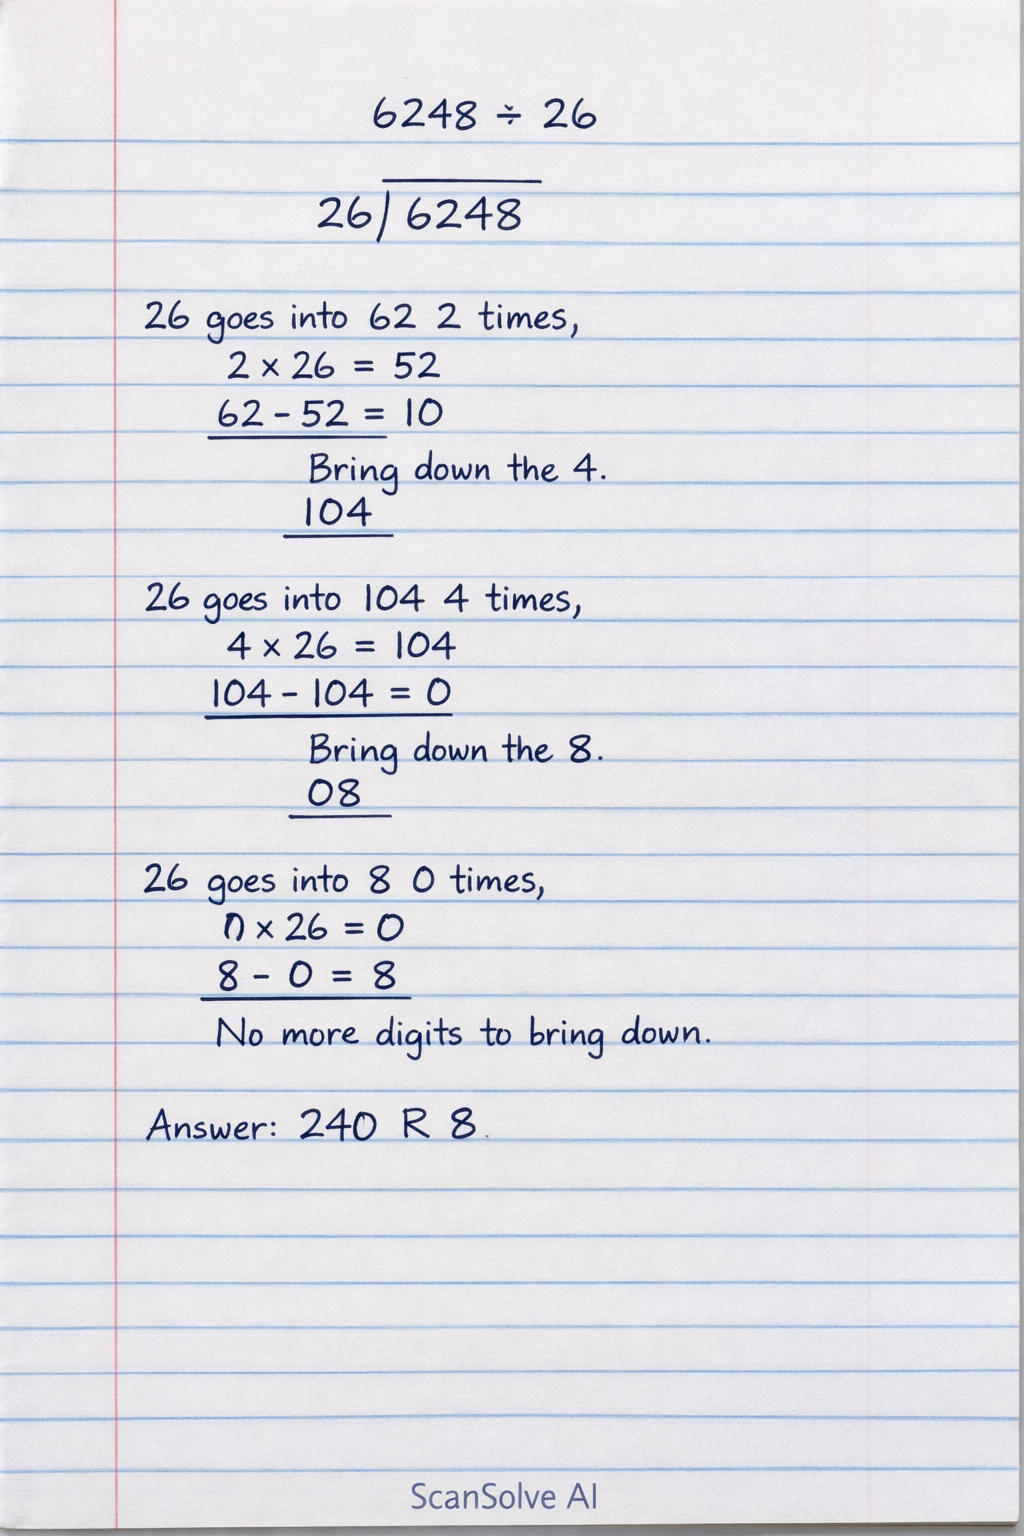 6248 ÷ 26
26) 6248
26 goes into 62 2 times,
2 × 26 = 52
62 - 52 = 10
Bring down the 4.
104
26 goes into 104 4 times,
4 × 26 = 104
104 - 104 = 0
Bring down the 8.
08
26 goes into 8 0 times,
0 × 26 = 0
8 - 0 = 8
No more digits to bring down.
Answer: 240 R 8
ScanSolve AI